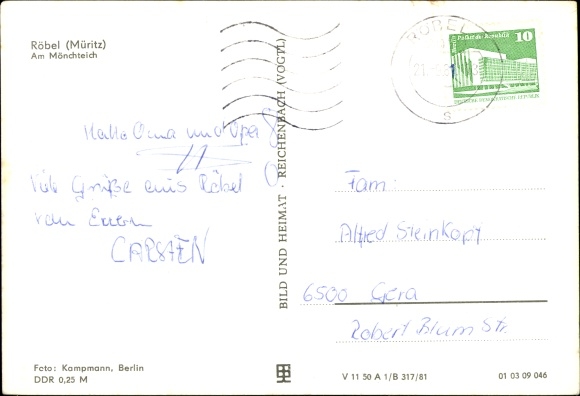 Röbel (Müritz)
Am Mönchteich
Hallo Oma und Opa
Viele Grüße aus Röbel
von Eurem
CARSTEN
Foto: Kampmann, Berlin
DDR 0,25 M
BILD UND HEIMAT · REICHENBACH (VOGTL)
RÖBEL
10
Berlin, Palast der Republik
DEUTSCHE DEMOKRATISCHE REPUBLIK
Fam:
Alfred Steinkopf
6500 Gera
Robert Blum Str.
V 11 50 A 1/B 317/81
01 03 09 046